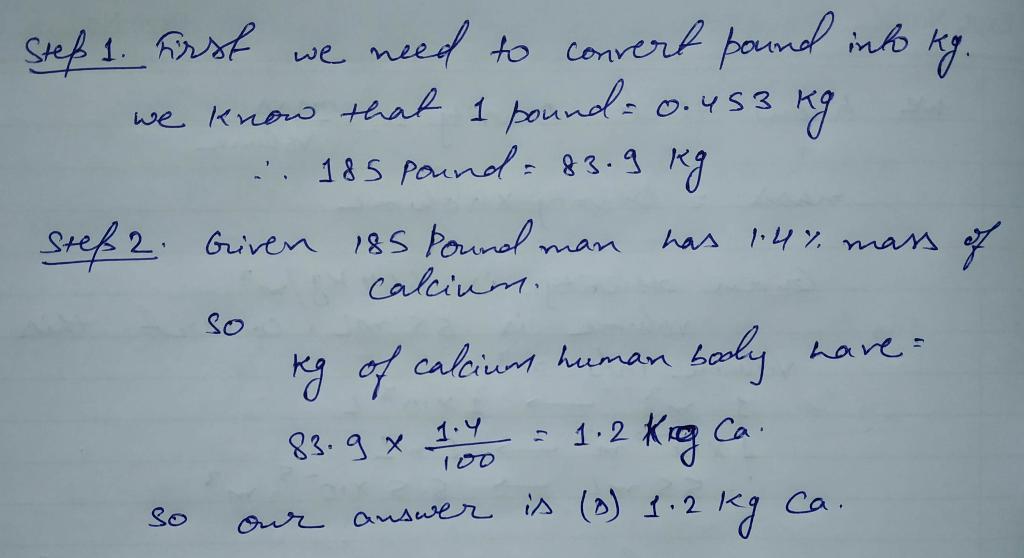 Step 1. First we need to convert pound into kg.
we know that 1 pound = 0.453 kg
∴ 185 pound = 83.9 kg
Step 2. Given 185 pound man has 1.4% mass of
calcium.
so
kg of calcium human body have =
83.9 × 1.4/100 = 1.2 Kg Ca.
so our answer is (D) 1.2 kg Ca.